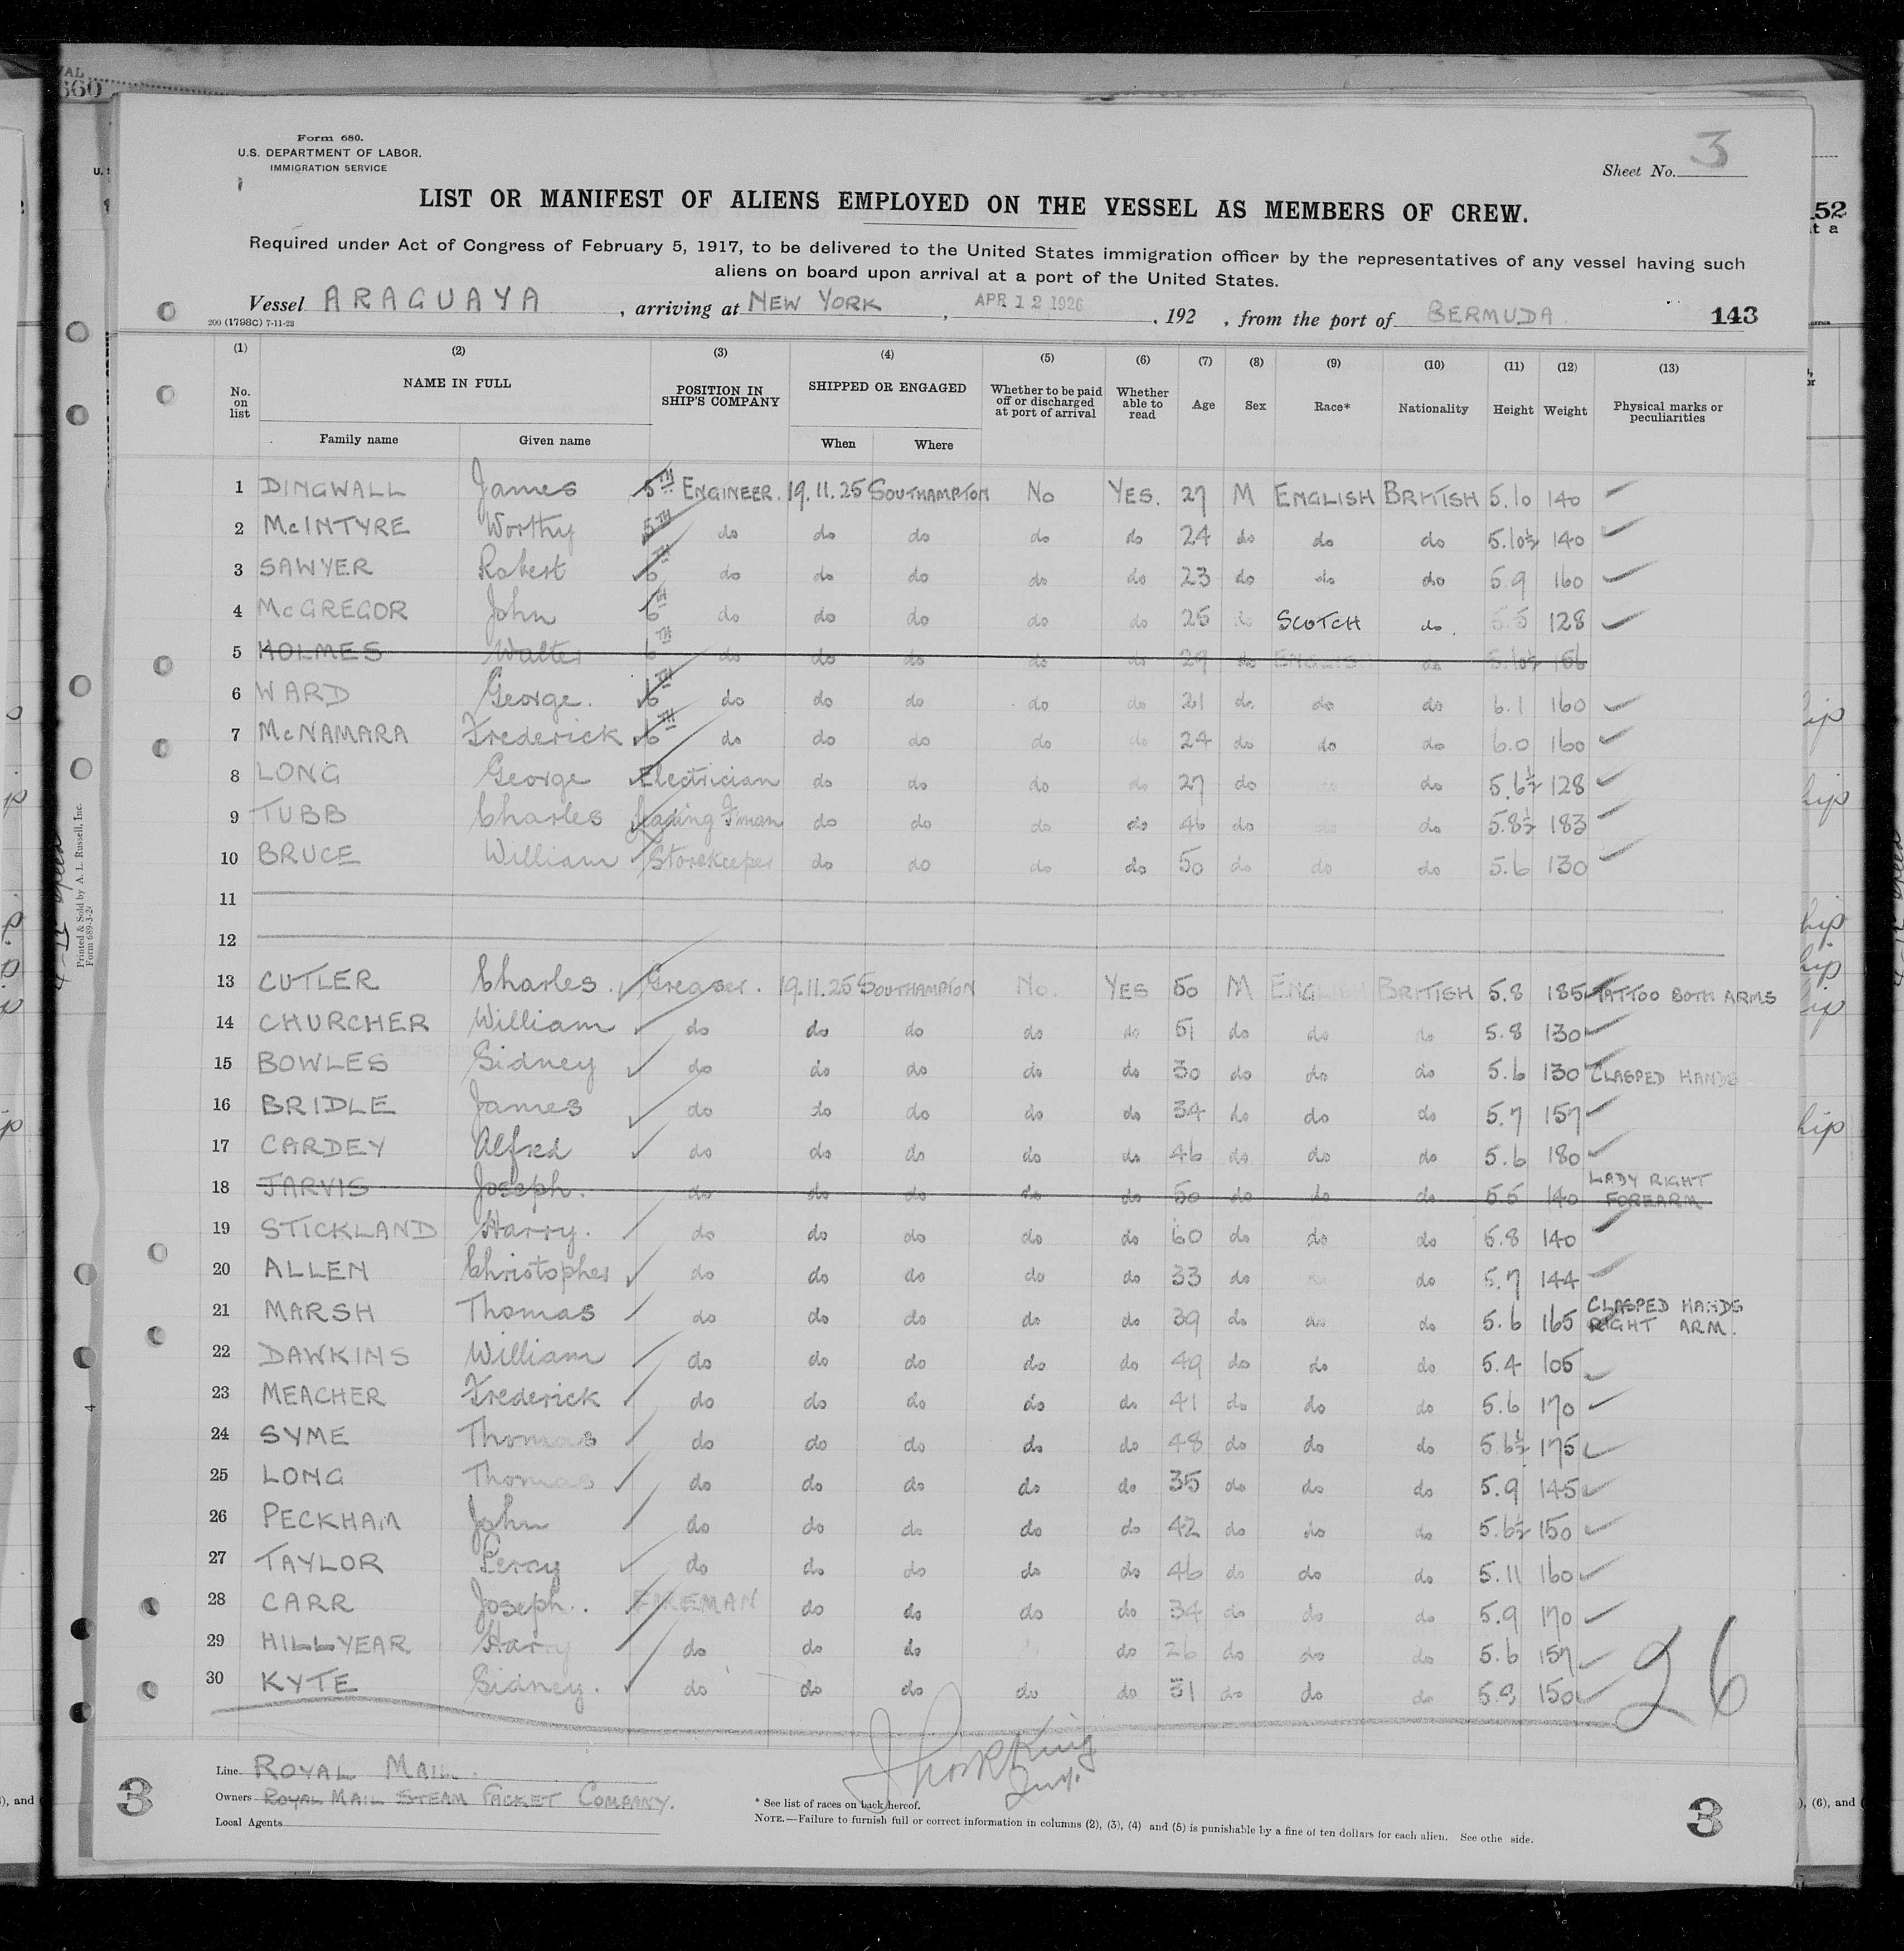 Form 680.
U.S. DEPARTMENT OF LABOR.
IMMIGRATION SERVICE
Sheet No. 3
LIST OR MANIFEST OF ALIENS EMPLOYED ON THE VESSEL AS MEMBERS OF CREW.
Required under Act of Congress of February 5, 1917, to be delivered to the United States immigration officer by the representatives of any vessel having such
aliens on board upon arrival at a port of the United States.
Vessel ARAGUAYA, arriving at NEW YORK, APR 12 1926, 192 , from the port of BERMUDA 143
200 (1798C) 7-11-23
(1) (2) (3) (4) (5) (6) (7) (8) (9) (10) (11) (12) (13)
No. on list NAME IN FULL Family name Given name POSITION IN SHIP'S COMPANY SHIPPED OR ENGAGED When Where Whether to be paid off or discharged at port of arrival Whether able to read Age Sex Race* Nationality Height Weight Physical marks or peculiarities
1 DINGWALL James 5TH ENGINEER. 19.11.25 SOUTHAMPTON No YES. 27 M ENGLISH BRITISH 5.10 140
2 McINTYRE Worthy 5TH do do do do do 24 do do do 5.10½ 140
3 SAWYER Robert 6TH do do do do do 23 do do do 5.9 160
4 McGREGOR John 6TH do do do do do 25 do SCOTCH do. 5.5 128
5 HOLMES Walter 6TH do do do do do 29 do ENGLISH do 5.10½ 156
6 WARD George. 6TH do do do do do 21 do. do do 6.1 160
7 McNAMARA Frederick 6TH do do do do do 24 do do do 6.0 160
8 LONG George Electrician do do do do 27 do do 5.6½ 128
9 TUBB Charles Leading F'man do do do do 46 do do do 5.8½ 183
10 BRUCE William Storekeeper do do do do 50 do do do 5.6 130
11
12
13 CUTLER Charles. Greaser. 19.11.25 SOUTHAMPTON No. YES 50 M ENGLISH BRITISH 5.8 185 TATTOO BOTH ARMS
14 CHURCHER William do do do do do 51 do do do 5.8 130
15 BOWLES Sidney do do do do do 30 do do do 5.6 130 CLASPED HANDS
16 BRIDLE James do do do do do 34 do do do 5.7 157
17 CARDEY Alfred do do do do do 46 do do do 5.6 180
18 JARVIS Joseph. do do do do do 50 do do do 5.5 140 LADY RIGHT FOREARM
19 STICKLAND Harry. do do do do do 60 do do do 5.8 140
20 ALLEN Christopher do do do do do 33 do do do 5.7 144
21 MARSH Thomas do do do do do 39 do do do 5.6 165 CLASPED HANDS RIGHT ARM.
22 DAWKINS William do do do do do 49 do do do 5.4 105
23 MEACHER Frederick do do do do do 41 do do do 5.6 170
24 SYME Thomas do do do do do 48 do do do 5.6½ 175
25 LONG Thomas do do do do do 35 do do do 5.9 145
26 PECKHAM John do do do do do 42 do do do 5.6½ 150
27 TAYLOR Percy do do do do do 46 do do do 5.11 160
28 CARR Joseph. FIREMAN do do do do 34 do do do 5.9 170
29 HILLYEAR Harry do do do do 26 do do do 5.6 157
30 KYTE Sidney. do do do do do 31 do do do 5.9 150
26
Line ROYAL MAIL.
Owners ROYAL MAIL STEAM PACKET COMPANY.
Local Agents
* See list of races on back hereof.
NOTE.—Failure to furnish full or correct information in columns (2), (3), (4) and (5) is punishable by a fine of ten dollars for each alien. See othe side.
3
3
Printed & Sold by A. L. Russell, Inc.